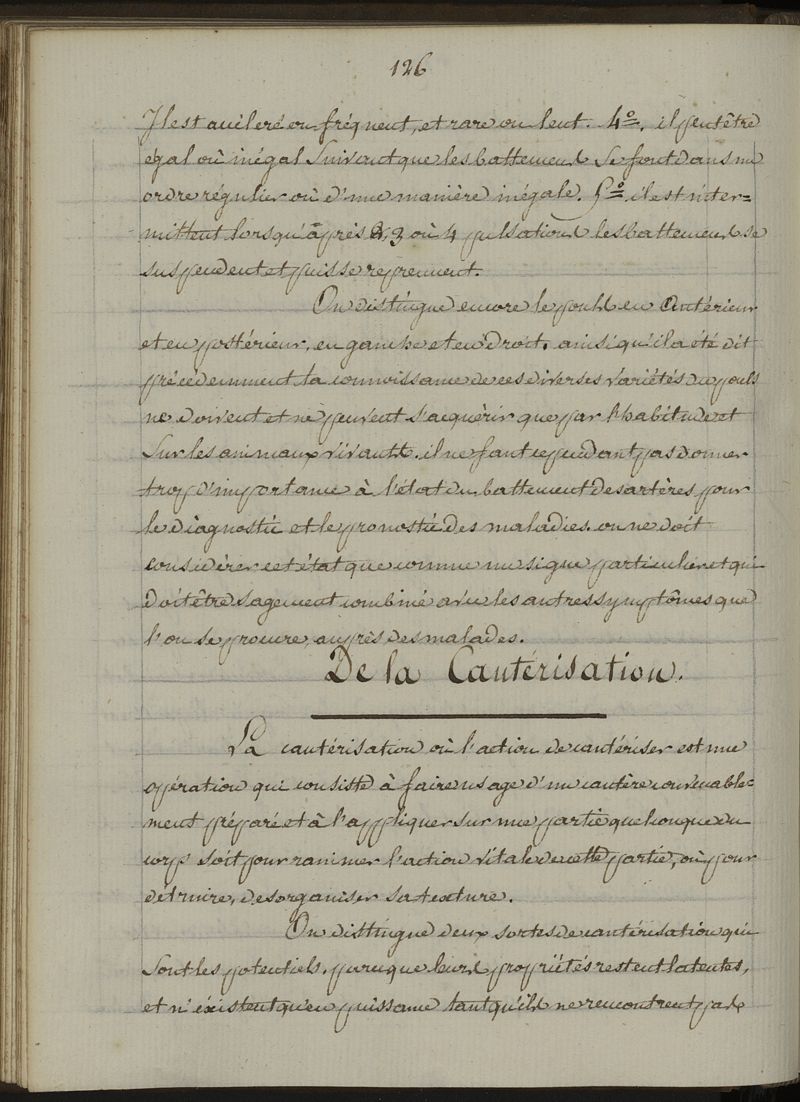 126
Il est acceleré ou fréquent, et rare ou lent. 4º. il peut être
égal où inégal Suivant que les battemens Se font dans un
ordre régulier où d'une manière inégale. 5º il est inter=
mittent lorsqu'après 2, 3 où 4 pulsations les battemens se
suspendent et puis se reprennent.
On distingue encore le pouls en Antérieur
et en postérieur, en gauche et en droit, ainsi qu'il a été dit
précedemment la connoissance de ces diverses variétés du pouls
ne doivent et ne peuvent s'acquérir que par l'habitude et
Sur les animaux vivants. il ne faut cependant pas donner
trop d'importance à l'état du battement des artères pour
le diagnostic et le pronostic des maladies. on ne doit
considérer cet état que comme un signe particulier et qui
doit être sagement combiné avec les autres symptômes que
l'on se procure, auprès des malades.
De la Cautérisation.
La cautérisation où l'action de cautériser est une
opération qui consiste à faire usage d'un cautère convenable=
ment préparé et à l'appliquer sur une partie quelconque du
corps soit pour ranimer l'action vitale de cette partie, où pour
détruire, desorganiser sa texture.
On distingue deux sortes de cautérisation qui
Sont les potentiels, parceque leurs propriétés restent latentes,
et n'existent qu'en puissance tant qu'ils ne rencontrent pas